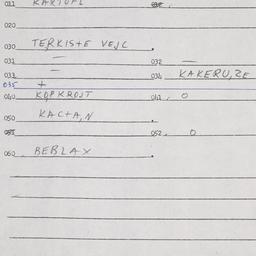 011 KARTOFL
020
030 TERKISTE VEJC .
031 — 032 —
033 — 034 KAKERU,ZE
035 +
040 KOPKROJT 041, O
050 KACTA,N .
051 052. O
060 BEBLAX .